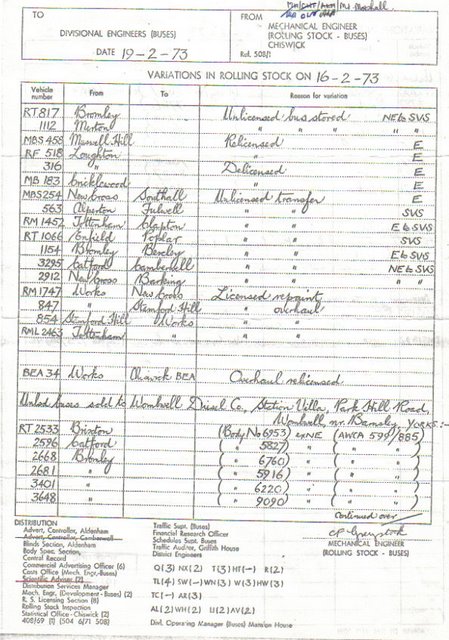 TO
DIVISIONAL ENGINEERS (BUSES)
DATE 19-2-73
FROM
MECHANICAL ENGINEER
(ROLLING STOCK - BUSES)
CHISWICK
Ref. 508/1
VARIATIONS IN ROLLING STOCK ON 16-2-73
Vehicle number From To Reason for variation
RT 817 Bromley Unlicensed bus stored NE to SVS
1112 Merton " " " " "
MBS 458 Muswell Hill Relicensed E
RF 518 Loughton " E
316 " Delicensed E
MB 183 Cricklewood " E
MBS 254 New Cross Southall Unlicensed transfer E
563 Alperton Fulwell " " SVS
RM 1452 Tottenham Clapton " " E to SVS
RT 1066 Enfield Poplar " " SVS
1154 Bromley Bexley " " E to SVS
3295 Catford Camberwell " " NE to SVS
2912 New Cross Barking " " " "
RM 1747 Works New Cross Licensed repaint
847 " Stamford Hill " overhaul
854 Stamford Hill Works " "
RML 2463 Tottenham " " "
BEA 34 Works Chiswick BEA Overhaul relicensed
Unlcd buses sold to Wombwell Diesel Co., Station Villa, Park Hill Road,
Wombwell, nr. Barnsley, YORKS:-
RT 2533 Brixton (Body No 6953) NE (AWCA 599/885)
2596 Catford ( " 5827) ( " )
2668 Bromley ( " 6760) ( " )
2681 " ( " 5916) ( " )
3401 " ( " 6220) ( " )
3648 " ( " 9090) ( " )
Continued over
MECHANICAL ENGINEER
(ROLLING STOCK - BUSES)
DISTRIBUTION
Advert. Controller, Aldenham
Advert. Controller, Camberwell
Blinds Section, Aldenham
Body Spec. Section,
Central Record
Commercial Advertising Officer (6)
Costs Office (Mech. Engr.-Buses)
Scientific Adviser (2)
Distribution Services Manager
Mech. Engr. (Development - Buses) (2)
R. S. Licensing Section (8)
Rolling Stock Inspection
Statistical Office - Chiswick (2)
408/69 (1) (504 6/71 508)
Traffic Supt. (Buses)
Financial Research Officer
Schedules Supt. Buses
Traffic Auditor, Griffith House
District Engineers
Q(3) NX(2) T(3) HT(-) R(2)
TL(4) SW(-) WN(3) W(3) HW(3)
TC(-) AR(3)
AL(2) WH(2) U(2) AV(2)
Divl. Operating Manager (Buses) Mansion House